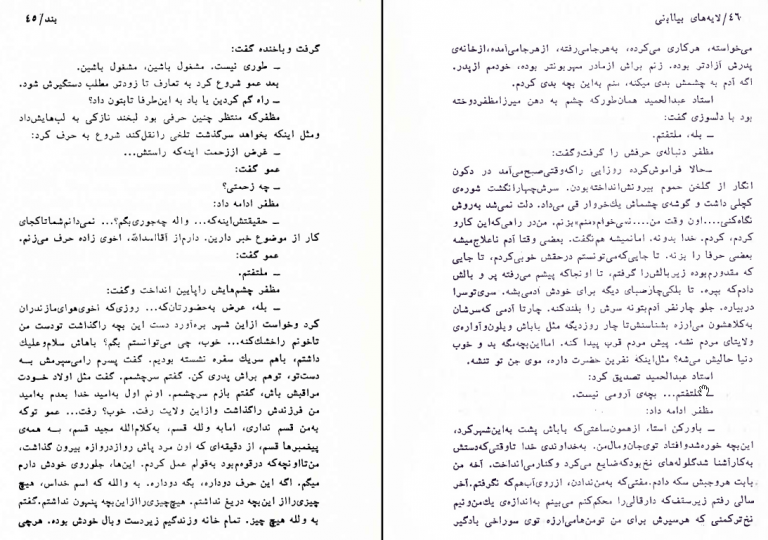 بند/۴۵
گرفت و باخنده گفت:
ــ طوری نیست. مشغول باشین، مشغول باشین.
بعد عمو شروع کرد به تعارف تا زودتر مطلب دستگیرش شود.
ــ راه گم کردین یا باد به این‌طرفا تابتون داد؟
مظفرکه منتظر چنین حرفی بود لبخند نازکی به لب‌هایش‌داد
ومثل اینکه بخواهد سرگذشت تلخی رانقل‌کند شروع به حرف کرد:
ــ غرض اززحمت اینه‌که راستش...
عمو گفت:
ــ چه زحمتی؟
مظفر ادامه داد:
ــ حقیقتش‌اینه‌که... واله چه‌جوری‌بگم؟... نمی‌دانم‌شماتاکجای
کار از موضوع خبر دارین. دارم‌از آقااسداله، اخوی زاده حرف می‌زنم.
عمو گفت:
ــ ملتفتم.
مظفر چشم‌هایش راپایین انداخت وگفت:
ــ بله، عرض به‌حضورتان‌که... روزی‌که اخوی‌هوای‌مازندران
کرد وخواست ازاین شهر بره‌آورد دست این بچه راگذاشت تودست من
تاخونم راخشک‌کنه... خوب، چی می‌توانستم بگم؟ باهاش سلام‌وعلیک
داشتم، باهم سریک سفره نشسته بودیم. گفت پسرم رامی‌سپرمش بــه
دست‌تو، توهم براش پدری کن. گفتم سرچشمم. گفت مثل اولاد خــودت
مراقبش باش، گفتم بازم سرچشمم. اونم اول به‌امید خدا بعدم به‌امید
من فرزندش راگذاشت وازاین ولایت رفت. خوب؟ رفت... عمو توکه
به‌من قسم نداری، امابه ولله قسم، به‌کلام‌الله مجید قسم، بــه همه‌ی
پیغمبرها قسم، از دقیقه‌ای که اون مرد پاش روازدروازه بیرون گذاشت،
من‌تااونچه‌که درقوه‌م‌بود به‌قولم عمل کردم. این‌ها، جلوروی خودش دارم
میگم. اگه این حرف دوداره، بگه دوداره. به والله که اسم خداس، هیچ
چیزی‌رااز این‌بچه دریغ نداشتم. هیچ‌چیزی‌راازاین‌بچه پنهون نداشتم.گفتم
به ولله هیچ چیز. تمام خانه وزندگیم زیردست وبال خودش بوده. هرچی
۴۶/لایه‌های بیابانی
می‌خواسته، هرکاری می‌کرده، به‌هرجامی‌رفته، ازهرجامی‌آمده،ازخانه‌ی
پدرش آزادتر بوده. زنم براش ازمادر مهربونتر بوده، خودمم ازپدر.
اگه آدم به چشمش بدی میکنه، منم به‌این بچه بدی کردم.
استاد عبدالحمید همان‌طورکه چشم به دهن میرزامظفردوخته
بود با دلسوزی گفت:
ــ بله، ملتفتم.
مظفر دنباله‌ی حرفش را گرفت‌وگفت:
ــ حالا فراموش‌کرده روزایی راکه‌وقتی‌صبح‌می‌آمد در دکون
انگار از گلخن حموم بیرونش‌انداخته‌بودن. سرش‌چهارانگشت شوره‌ی
کچلی داشت و گوشه‌ی چشماش یک‌خروار قی می‌داد. دلت نمی‌شد به‌روش
نگاه‌کنی....اون وقت من....نمی‌خوام«منم»بزنم. من‌در راهی‌که‌این کارو
کردم، کردم. خدا بدونه. امانمیشه هم‌نگفت. بعضی وقتا آدم ناعلاج‌میشه
بعضی حرفا را بزنه. تا جایی‌که‌می‌تونستم درحقش خوبی‌کردم، تا جایی
که مقدورم‌بوده زیربالش‌را گرفتم، تا اونجاکه پیشم می‌رفته پر و بالش
دادم‌که بپره. تا بلکی‌چارصباى دیگه برای خودش آدمی‌بشه. سری‌توسرا
دربیاره. جلو چارنفر آدم‌بتونه سرش را بلندکنه. چارتا آدمی که‌سرشان
به‌کلاهشون می‌ارزه بشناسنش‌تا چار روزدیگه مثل باباش ویلون‌وآواره‌ی
ولایتای مردم نشه. پیش مردم قرب پیدا کنه. امااین‌بچه‌مگه بد و خوب
دنیا حالیش می‌شه؟ مثل‌اینکه نفرین حضرت داره، موی جن تو تنشه.
استاد عبدالحمید تصدیق کرد:
ــ ملتفتم... بچه‌ی آرومی نیست.
مظفر ادامه داد:
ــ باورکن استا، ازهمون‌ساعتی‌که باباش پشت به‌این‌شهرکرد،
این‌بچه خوره‌شدوافتاد توی‌جان‌ومال‌من. به‌خداوندی خدا تاوقتی‌که‌دستش
به‌کارآشنا شدگلوله‌های نخ‌بودکه‌ضایع می‌کرد وکنارمی‌انداخت. آخه من
بابت هروجبش سکه دادم. مفتی‌که به‌من‌ندادن، ازروی‌آب‌هم‌که نگرفتم.آخر
سالی رفتم زیرسقف‌که دارقالی‌را محکم‌کنم می‌بینم به‌اندازه‌ی یک‌من‌ونیم
نخ‌ترکمنی که هرسیرش برای من تومن‌هامی‌ارزه توی سوراخی بادگیر